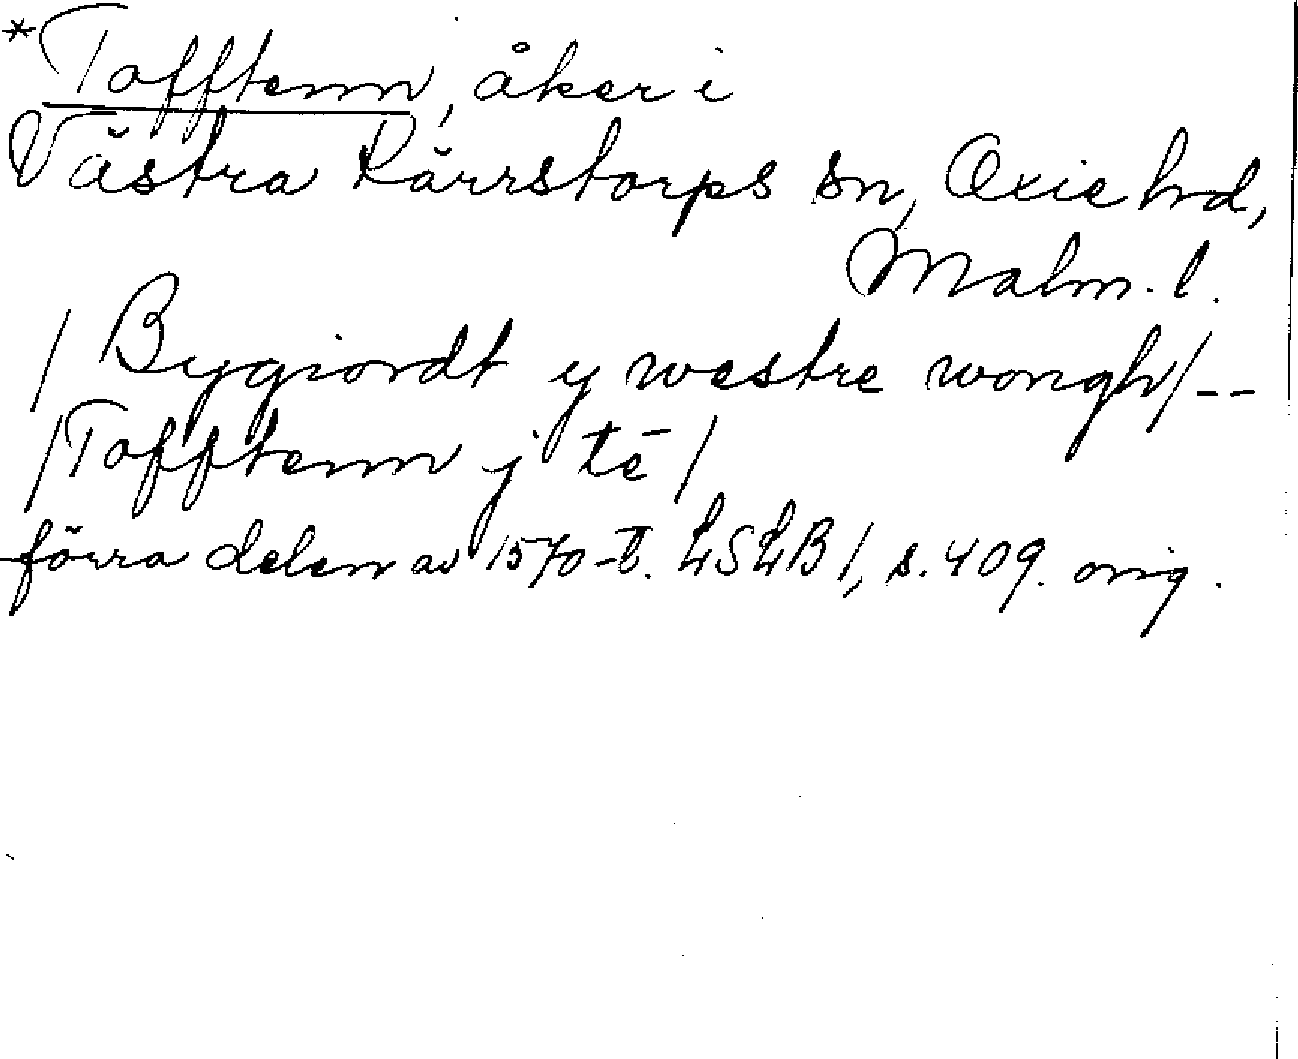 *Tofftenn, åker i
Västra Kärrstorps sn, Oxie hrd,
Malm. l.
/ Bygiordt y westre wongh/--
/Tofftenn j tē/
förra delen av 1570-t. LSLB 1, s. 409. orig.